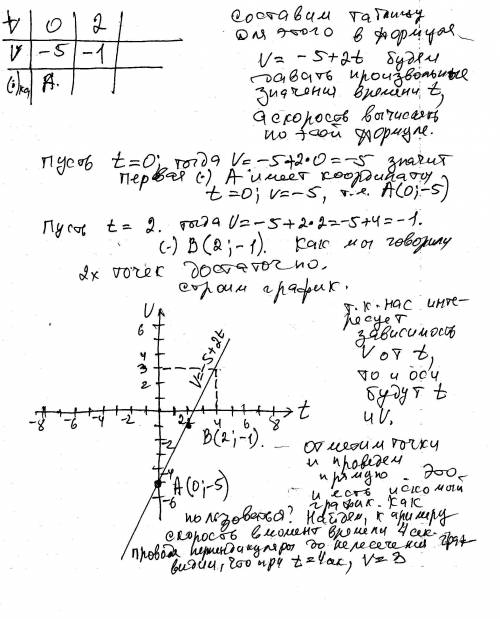 t 0 2
V -5 -1
(·) А.
составим таблицу
для этого в формуле
V = -5+2t будем
давать произвольные
значения времени t,
а скорость вычислять
по этой формуле.
Пусть t=0; тогда V=-5+2·0=-5 значит
первая (·) А имеет координату
t=0; v=-5, т.е. А(0;-5)
Пусть t= 2. тогда V=-5+2·2=-5+4=-1.
(·) В(2;-1). Как мы говорили
2х точек достаточно.
строим график.
т.к. нас инте-
ресует
зависимость
V от t,
то и оси
будут t
и V.
V
6
4
3
2
V=-5+2t
-8 -6 -4 -2 2 4 6 8 t
В(2;-1).
-2
-4
А(0;-5)
-6
отметим точки
и проведем
прямую. Это
и есть искомый
график. Как
пользоваться? Найдем, к примеру
скорость в момент времени 4 сек.
провели перпендикуляры до пересечения
видим, что при t=4, V=3